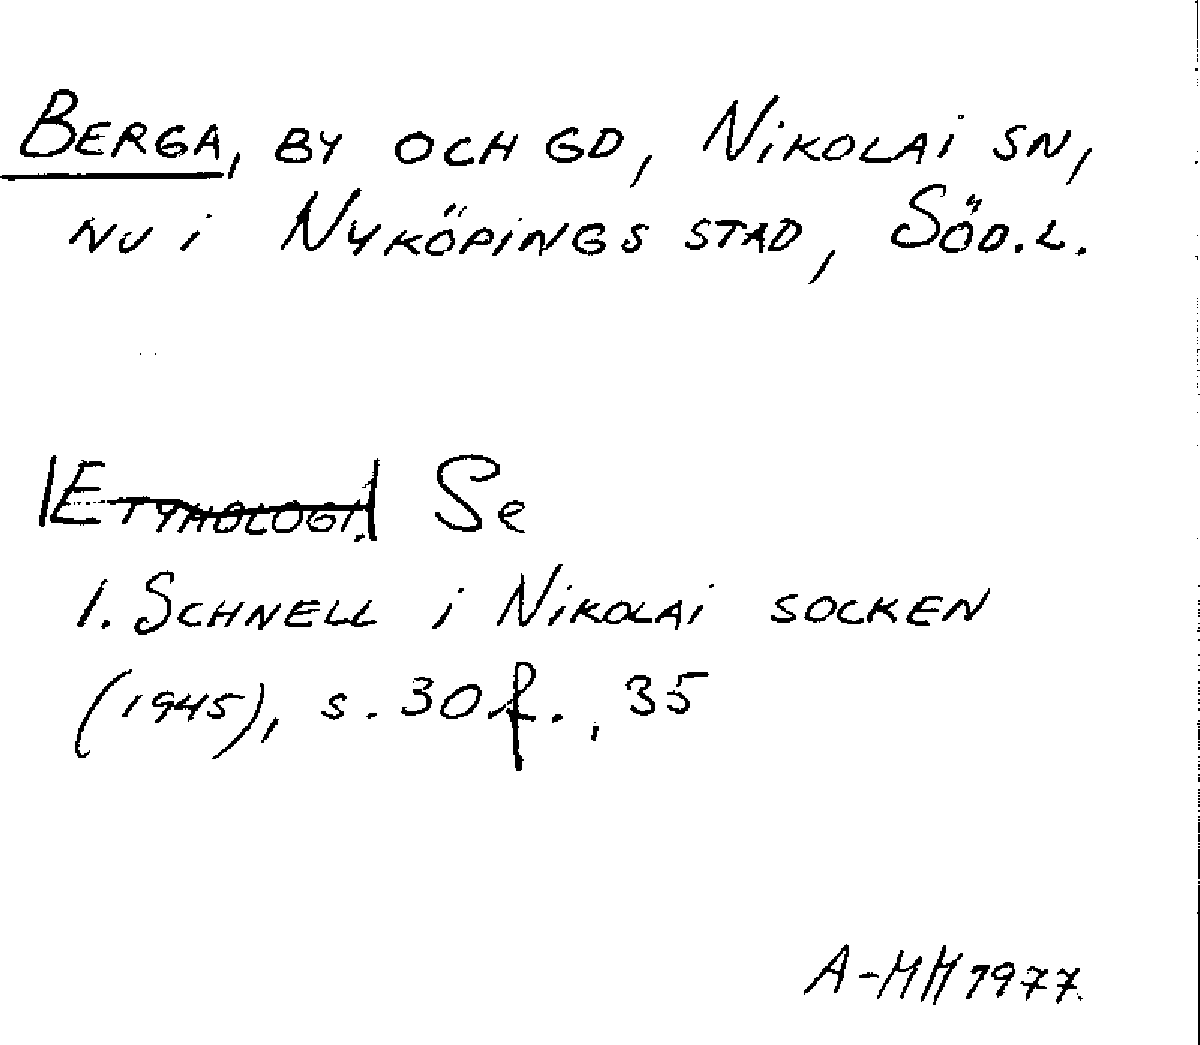 Berga, by och gd, Nikolai sn,
nu i Nyköpings stad, Söd.l.
|Etymologi.| Se
1. Schnell i Nikolai socken
(1945), s. 30 f., 35
A-MH 1977.